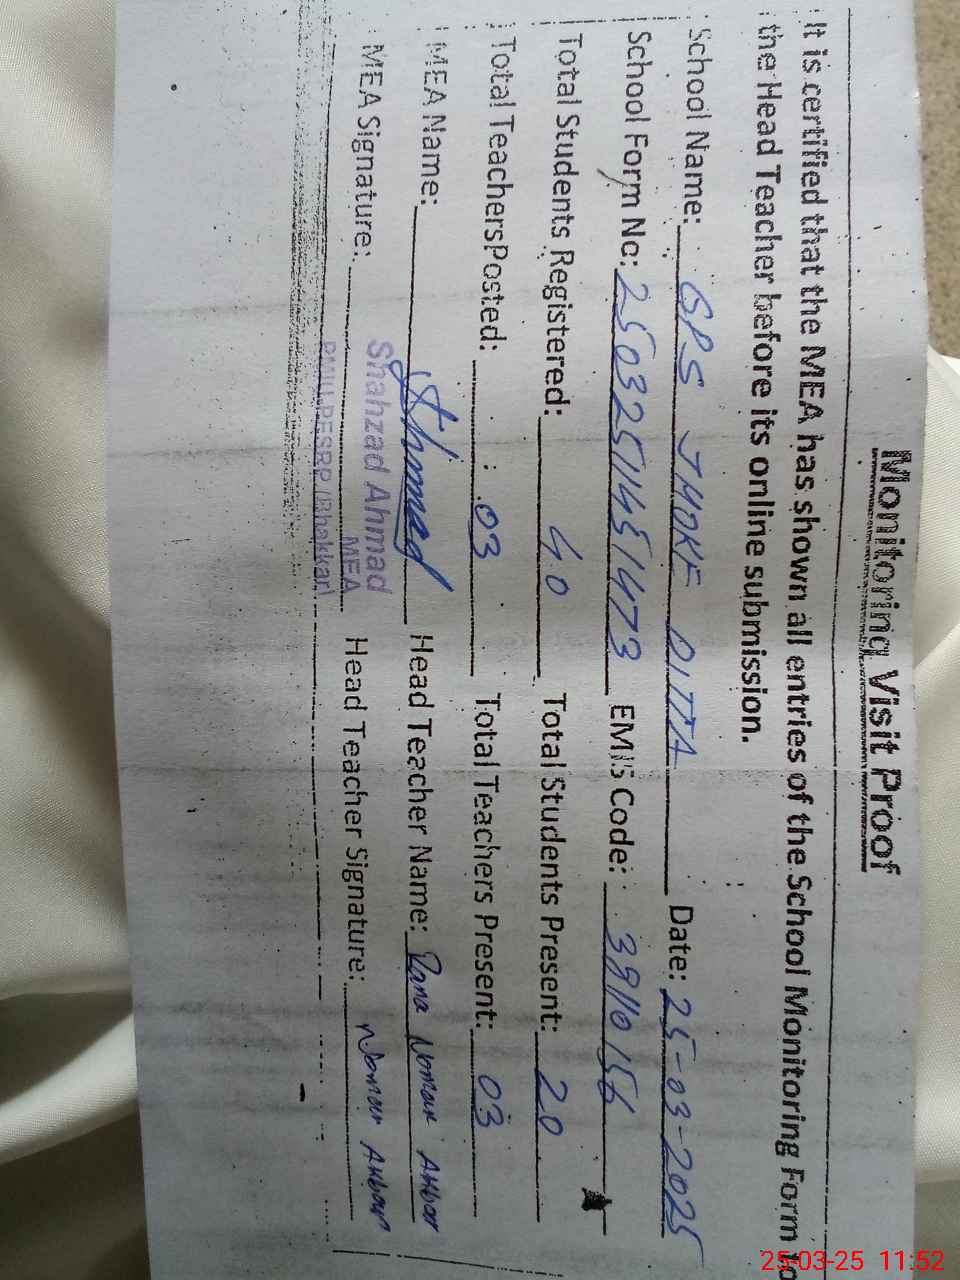 Monitoring Visit Proof
It is certified that the MEA has shown all entries of the School Monitoring Form to
the Head Teacher before its online submission.
School Name: GPS JHOKE DITTA Date: 25-03-2025
School Form No: EMIS Code: 38110156
Total Students Registered: 40 Total Students Present: 20
Total TeachersPosted: 03 Total Teachers Present: 03
MEA Name: Ahmad Head Teacher Name: Rana Noman Akbar
MEA Signature: Head Teacher Signature: Noman Akbar
Shahzad Ahmad
MEA
PMIU-PESRP (Bhakkar)
25-03-25 11:52